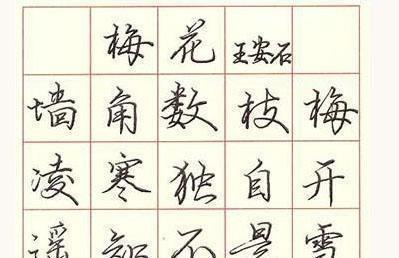 梅花 王安石
墙角数枝梅
凌寒独自开
遥知不是雪